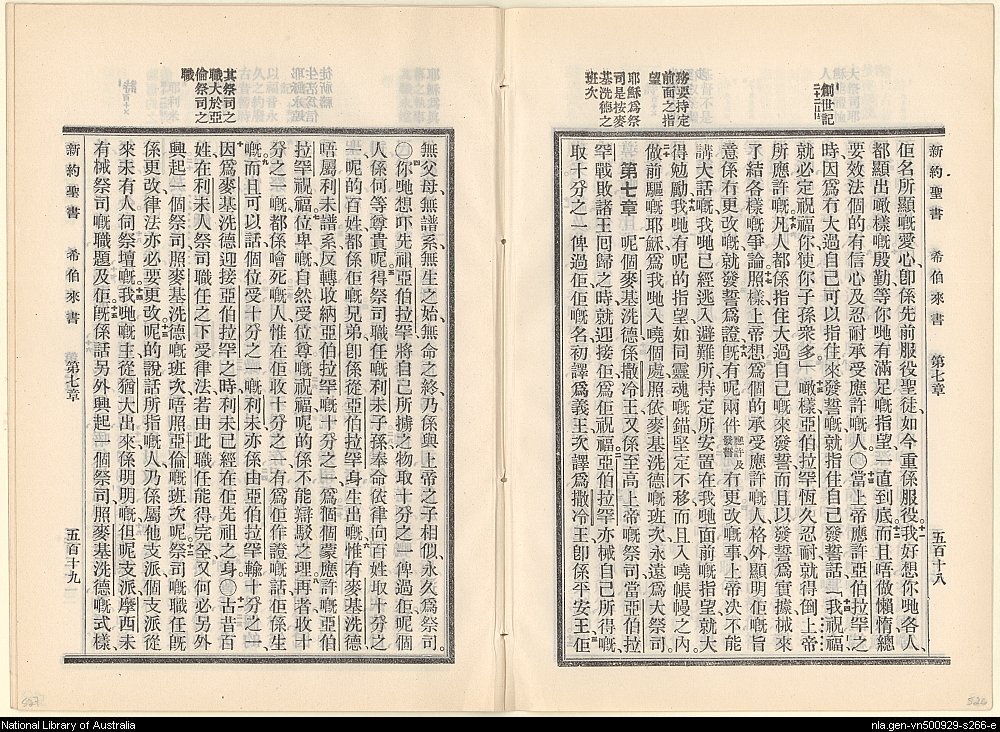 新約聖書 希伯來書 第七章 五百十八
佢名所顯嘅愛心卽係先前服役聖徒如今重係服役十一我好想你哋各人
都顯出噉樣嘅殷勤等你哋有滿足嘅指望一直到底十二而且唔做懶惰總
要效法個的有信心及忍耐承受應許嘅人〇十三當上帝應許亞伯拉罕之
時因爲冇大過自己可以指住來發誓嘅就指住自己發誓話十四我祝福
就必定祝福你使你子孫衆多十五噉樣亞伯拉罕恆久忍耐就得倒上帝
所應許嘅十六凡人都係指住大過自己嘅來發誓而且以發誓爲實據械來
了結各樣嘅爭論十七照樣上帝想爲個的承受應許嘅人格外顯明佢嘅旨
意係冇更改嘅就發誓爲證十八旣有呢兩件應許及發誓冇更改嘅事上帝决不能
講大話嘅我哋已經逃入避難所持定所安置在我哋面前嘅指望就大
得勉勵十九我哋有呢的指望如同靈魂嘅錨堅定不移而且入嘵帳幔之內
二十做前驅嘅耶穌爲我哋入嘵個處照依麥基洗德嘅班次永遠爲大祭司
第七章 呢個麥基洗德係撒冷王又係至高上帝嘅祭司當亞伯拉
罕戰敗諸王囘歸之時就迎接佢爲佢祝福二亞伯拉罕亦械自己所得嘅
取十分之一俾過佢佢嘅名初譯爲義王次譯爲撒冷王卽係平安王三佢
創世記
務要持定
前面之指
望
耶穌爲祭
司是按麥
基洗德之
班次
無父母無譜系無生之始無命之終乃係與上帝之子相似永久爲祭司
〇四你哋想吓先祖亞伯拉罕將自己所擄之物取十分之一俾過佢呢個
人係何等尊貴呢五得祭司職任嘅利未子孫奉命依律向百姓取十分之
一呢的百姓都係佢嘅兄弟卽係從亞伯拉罕身生出嘅六惟有麥基洗德
唔屬利未譜系反轉收納亞伯拉罕嘅十分之一爲個個蒙應許嘅亞伯
拉罕祝福七位卑嘅自然受位尊嘅祝福呢的係不能辯駁之理八再者收十
分之一嘅都係會死嘅人惟在佢收十分之一有爲佢作證嘅話佢係生
嘅九而且可以話個位受十分之一嘅利未亦係由亞伯拉罕輸十分之一
十因爲麥基洗德迎接亞伯拉罕之時利未已經在佢先祖之身〇十一古昔百
姓在利未人祭司職任之下受律法若由此職任能得完全又何必另外
興起一個祭司照麥基洗德嘅班次唔照亞倫嘅班次呢十二祭司嘅職任旣
係更改律法亦必要更改十三呢的說話所指嘅人乃係屬他支派個支派從
來未有人伺祭壇嘅十四我哋嘅主從猶大出來係明明嘅但呢支派摩西未
有械祭司嘅職題及佢十五旣係話另外興起一個祭司照麥基洗德嘅式樣
新約聖書 希伯來書 第七章 五百十九
其祭司之
職大於亞
倫祭司之
職
National Library of Australia
nla.gen-vn500929-s266-e